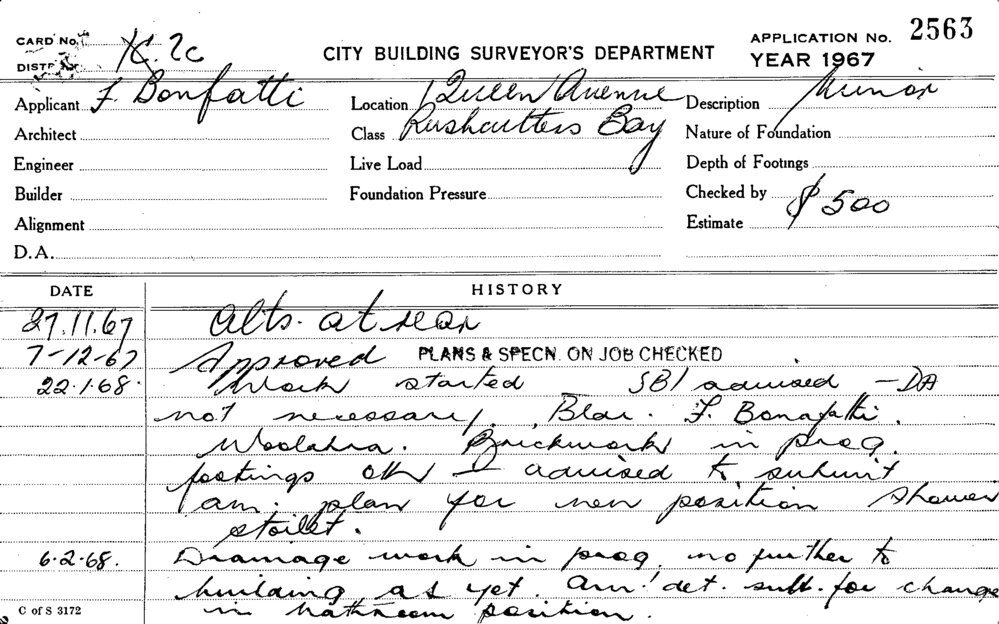 CARD No. K. 2c
DISTRICT
CITY BUILDING SURVEYOR'S DEPARTMENT
APPLICATION No. 2563
YEAR 1967
Applicant F Bonfatti
Location 1 Queen Avenue
Description Minor
Architect
Class Rushcutters Bay
Nature of Foundation
Engineer
Live Load
Depth of Footings
Builder
Foundation Pressure
Checked by
Alignment
Estimate $ 500
D.A.
DATE
HISTORY
27.11.67 Alts. at rear
7-12-67 Approved PLANS & SPECN. ON JOB CHECKED
22.1.68. Work started SBI advised - DA
not necessary, Bldr. F. Bonafatti.
Woolahra. Brickwork in prog.
footings OK I advised to submit
am. plan for new position shower
& toilet.
6.2.68. Drainage work in prog. no further to
building as yet. Am! det. sub. for change
in bathroom position.
C of S 3172